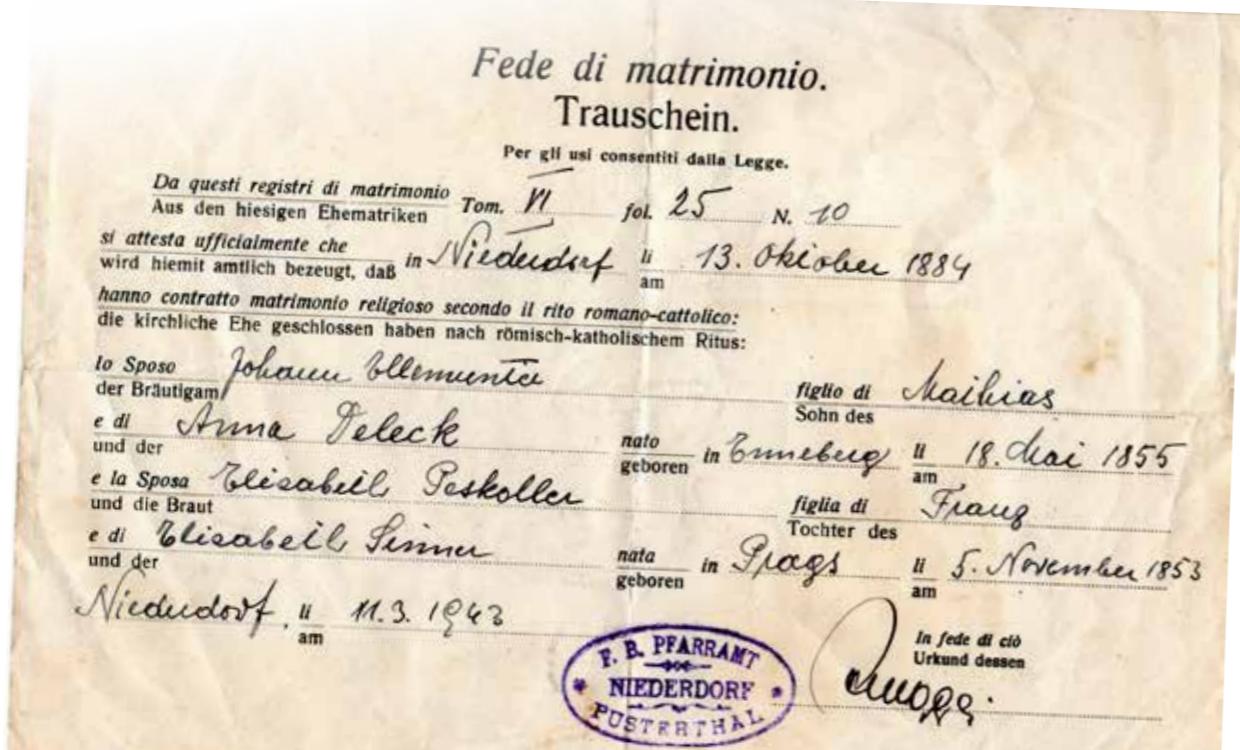 Fede di matrimonio.
Trauschein.
Per gli usi consentiti dalla Legge.
Da questi registri di matrimonio
Aus den hiesigen Ehematriken Tom. VI fol. 25 N. 10
si attesta ufficialmente che
wird hiemit amtlich bezeugt, daß in Niederdorf li am 13. Oktober 1884
hanno contratto matrimonio religioso secondo il rito romano-cattolico:
die kirchliche Ehe geschlossen haben nach römisch-katholischem Ritus:
lo Sposo
der Bräutigam Johann figlio di Sohn des Mathias
e di
und der Anna nato geboren in Enneberg li am 18. Mai 1855
e la Sposa
und die Braut Elisabeth Peskoller figlia di Tochter des Franz
e di
und der Elisabeth Sinner nata geboren in Prags li am 5. November 1853
Niederdorf, li am 11. 3. 1943
In fede di ciò
Urkund dessen
F. B. PFARRAMT
NIEDERDORF
PUSTERTHAL